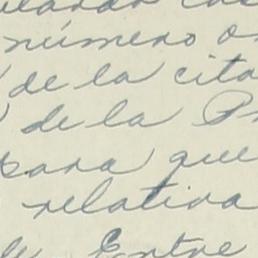 número
de la cita
de la
para que
relativa
Entre